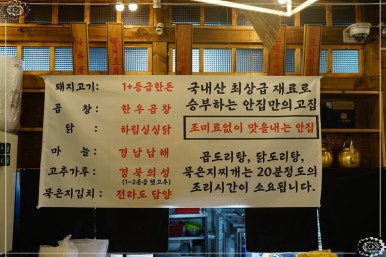 돼지고기: 1+등급한돈
곱창: 한우곱창
닭: 하림싱싱닭
마늘: 경남남해
고추가루: 경북의성
(1~2등급 햇고추)
묵은지김치: 전라도 담양
국내산 최상급 재료로
승부하는 안집만의고집
조미료없이 맛을내는 안집
곱도리탕, 닭도리탕,
묵은지찌개는 20분정도의
조리시간이 소요됩니다.